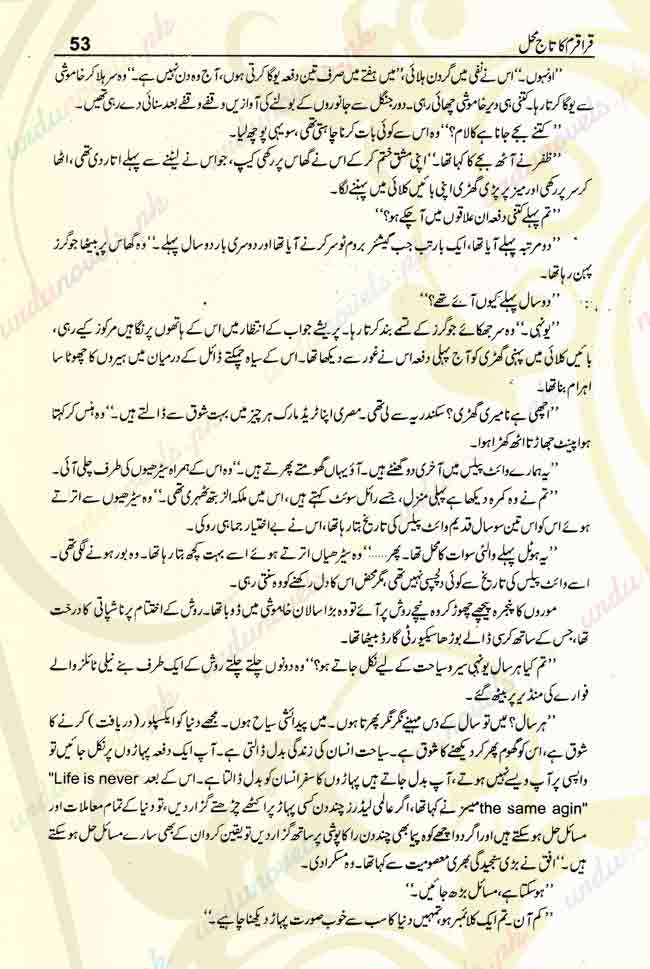 قراقرم کا تاج محل 53
’’اونہوں۔‘‘ اس نے نفی میں گردن ہلائی، ’’میں ہفتے میں صرف تین دفعہ یوگا کرتی ہوں، آج وہ دن نہیں ہے۔‘‘ وہ سر ہلا کر خاموشی
سے یوگا کرتا رہا۔ کتنی ہی دیر خاموشی چھائی رہی۔ دور جنگل سے جانوروں کے بولنے کی آوازیں وقفے وقفے بعد سنائی دے رہی تھیں۔
’’کتنے بجے جانا ہے کالام؟‘‘ وہ اس سے کوئی بات کرنا چاہتی تھی، سو یہی پوچھ لیا۔
’’ظفر نے آٹھ بجے کا کہا تھا۔‘‘ اپنی مشق ختم کر کے اس نے گھاس پر رکھی کیپ، جو اس نے لیٹنے سے پہلے اتار دی تھی، اٹھا
کر سر پر رکھی اور میز پر پڑی گھڑی اپنی بائیں کلائی میں پہننے لگا۔
’’تم پہلے کتنی دفعہ ان علاقوں میں آ چکے ہو؟‘‘
’’دو مرتبہ پہلے آیا تھا، ایک بار تب جب گیشر بروم ٹو سر کرنے آیا تھا اور دوسری بار دو سال پہلے۔‘‘ وہ گھاس پر بیٹھا جوگرز
پہن رہا تھا۔
’’دو سال پہلے کیوں آئے تھے؟‘‘
’’یونہی۔‘‘ وہ سر جھکائے جوگرز کے تسمے بند کرتا رہا۔ پریشے جواب کے انتظار میں اس کے ہاتھوں پر نگاہیں مرکوز کیے رہی،
بائیں کلائی میں پہنی گھڑی کو آج پہلی دفعہ اس نے غور سے دیکھا تھا۔ اس کے سیاہ چمکتے ڈائل کے درمیان میں ہیروں کا چھوٹا سا
اہرام بنا تھا۔
’’اچھی ہے نا میری گھڑی؟ سکندریہ سے لی تھی۔ مصری اپنا ٹریڈ مارک ہر چیز میں بہت شوق سے ڈالتے ہیں۔‘‘ وہ ہنس کر کہتا
ہوا پینٹ جھاڑتا اٹھ کھڑا ہوا۔
’’یہ ہمارے وائٹ پیلس میں آخری دو گھنٹے ہیں۔ آؤ یہاں گھومتے پھرتے ہیں۔‘‘ وہ اس کے ہمراہ سیڑھیوں کی طرف چلی آئی۔
’’تم نے وہ کمرہ دیکھا ہے پہلی منزل، جسے رائل سوئٹ کہتے ہیں، اس میں ملکہ الزبتھ ٹھہری تھی۔‘‘ وہ سیڑھیوں سے اترتے
ہوئے اس کو اس تین سو سال قدیم وائٹ پیلس کی تاریخ بتا رہا تھا، اس نے بے اختیار جماہی روکی۔
’’یہ ہوٹل پہلے والئی سوات کا محل تھا۔ پھر.....‘‘ وہ سیڑھیاں اترتے ہوئے اسے بہت کچھ بتا رہا تھا۔ وہ بور ہونے لگی تھی۔
اسے وائٹ پیلس کی تاریخ سے کوئی دلچسپی نہیں تھی، مگر محض اس کا دل رکھنے کو وہ سنتی رہی۔
موروں کا پنجرہ پیچھے چھوڑ کر وہ نیچے روش پر آئے تو وہ بڑا سا لان خاموشی میں ڈوبا تھا۔ روش کے اختتام پر ناشپاتی کا درخت
تھا، جس کے ساتھ کرسی ڈالے بوڑھا سیکیورٹی گارڈ بیٹھا تھا۔
’’تم کیا ہر سال یونہی سیر و سیاحت کے لیے نکل جاتے ہو؟‘‘ وہ دونوں چلتے چلتے روش کے ایک طرف بنے نیلی ٹائلز والے
فوارے کی منڈیر پر بیٹھ گئے۔
’’ہر سال؟ میں تو سال کے دس مہینے نگر نگر پھرتا ہوں۔ میں پیدائشی سیاح ہوں۔ مجھے دنیا کو ایکسپلور (دریافت) کرنے کا
شوق ہے، اس کو گھوم پھر کر دیکھنے کا شوق ہے۔ سیاحت انسان کی زندگی بدل ڈالتی ہے۔ آپ ایک دفعہ پہاڑوں پر نکل جائیں تو
واپسی پر آپ ویسے نہیں ہوتے، آپ بدل جاتے ہیں پہاڑوں کا سفر انسان کو بدل ڈالتا ہے۔ اس کے بعد "Life is never
the same agin" میسنر نے کہا تھا، اگر عالمی لیڈرز چند دن کسی پہاڑ پر اکٹھے چڑھتے گزار دیں، تو دنیا کے تمام معاملات اور
مسائل حل ہو سکتے ہیں اور اگر دو اچھے کوہ پیما بھی چند دن راکاپوشی پر ساتھ گزار دیں تو یقین کرو ان کے بھی سارے مسائل حل ہو سکتے
ہیں۔‘‘ افق نے بڑی سنجیدگی بھری معصومیت سے کہا تھا۔ وہ مسکرا دی۔
’’ہو سکتا ہے، مسائل بڑھ جائیں۔‘‘
’’کم آن۔ تم ایک کلائمبر ہو، تمہیں دنیا کا سب سے خوب صورت پہاڑ دیکھنا چاہیے۔‘‘